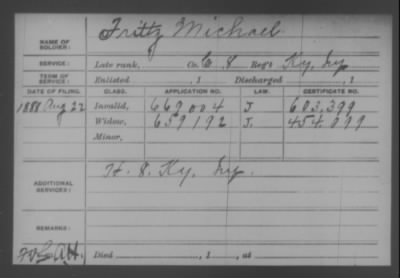 NAME OF SOLDIER: Fritz Michael
SERVICE: Late rank, Co. G 8 Reg't Ky. Inf.
TERM OF SERVICE: Enlisted , 1 Discharged , 1
DATE OF FILING. CLASS. APPLICATION NO. LAW. CERTIFICATE NO.
1888 Aug 22 Invalid, 669004 J 603,399
Widow, 659192 J. 454.099
Minor,
ADDITIONAL SERVICES: H. 8. Ky. Inf.
REMARKS:
Died , 1 , at